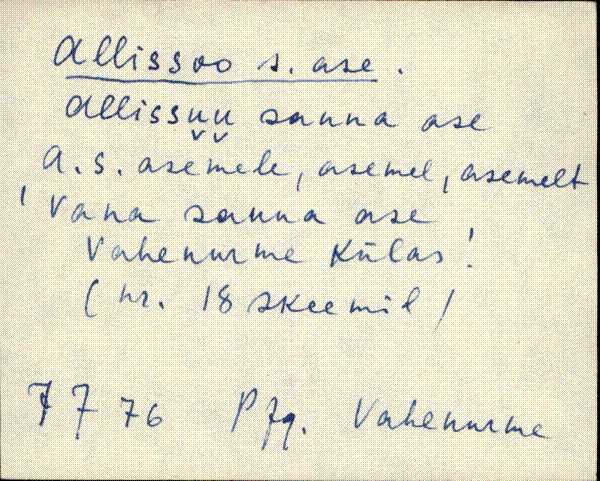 Allissoo s. ase.
Allissu̬u̬ sauna ase
A. s. asemele, asemel, asemelt
'Vana sauna ase
Vahenurme külas'
(nr. 18 skeemil)
7 7 76 Pjg. Vahenurme